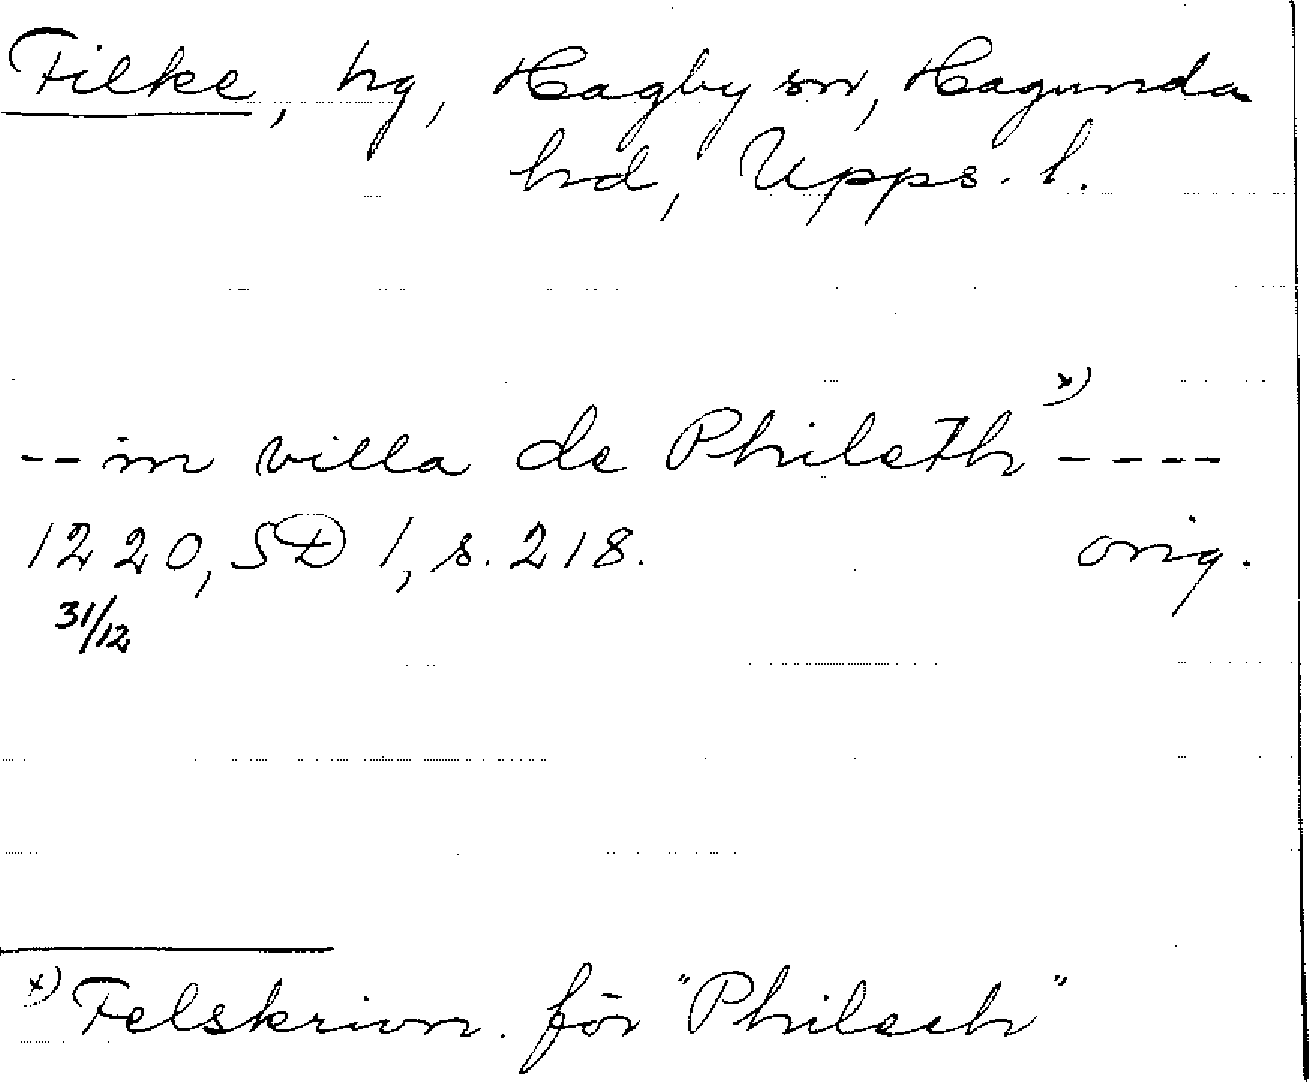 Filke, hg, Hagby sn, Hagunda
hd, Upps. l.
-- in villa de Phileth x) ----
1220, SD 1, s. 218. orig.
31/12
x) Felskrivn. för "Philech"